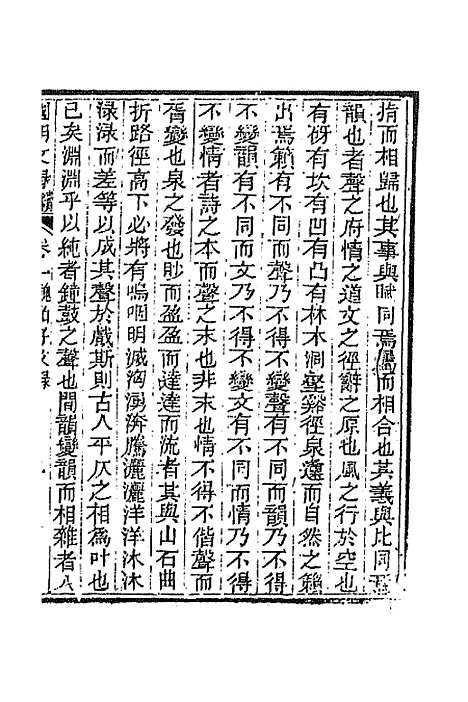 指而相歸也其事與賦同焉韻而相合也其義與比同焉
韻也者聲之府情之道文之徑辭之原也風之行於空也
有枌有坎有凹有凸有林木洞壑谿徑泉邃而自然之籟
出焉籟有不同而聲乃不得不變聲有不同而韻乃不得
不變韻有不同而文乃不得不變文有不同而情乃不得
不變情者詩之本而聲之末也非末也情不得不偕聲而
胥變也泉之發也眇而盈盈而達達而流者其與山石曲
折路徑高下必將有嗚咽明滅洶湧滂騰灑灑洋洋沐沐
淥淥而差等以成其聲於戲斯則古人平仄之相為叶也
已矣淵淵乎以純者鐘鼓之聲也間韻變韻而相雜者八
國朝文錄續 卷一 魏伯子文錄